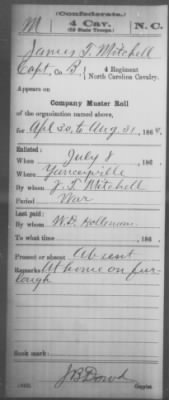 (Confederate.)
M 4 Cav. N. C.
(59 State Troops.)
James T. Mitchell
Capt., Co. B, 4 Regiment
North Carolina Cavalry.
Appears on
Company Muster Roll
of the organization named above,
for Apl 30, to Aug 31, 1864.
Enlisted:
When July 8, 186 .
Where Yanceyville
By whom J. T. Mitchell
Period War
Last paid:
By whom W. D. Holloman
To what time , 186 .
Present or absent Absent
Remarks At home on fur-
lough
Book mark:
J B Dowd
Copyist